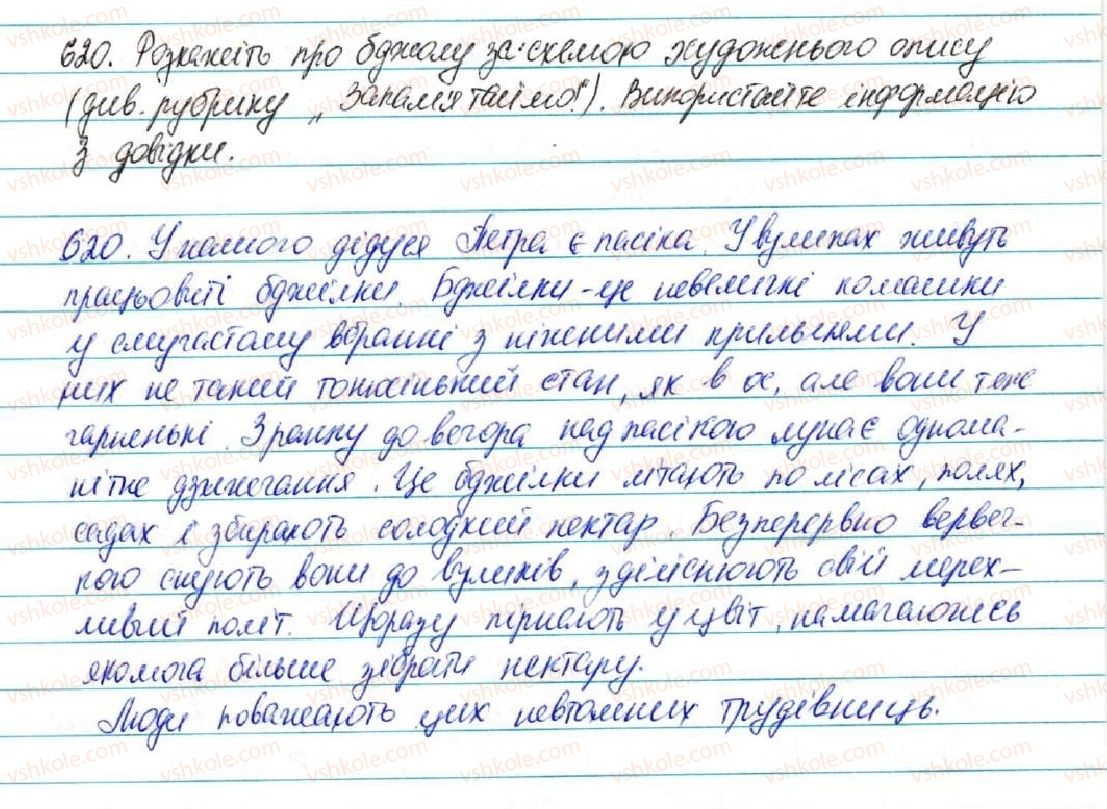 620. Розкажіть про бджолу за схемою художнього опису
(див. рубрику „Запам'ятаймо!"). Використайте інформацію
з довідки.
620. У нашого дідуся Петра є пасіка. У вуликах живуть
працьовиті бджілки. Бджілки - це невеличкі комашки
у смугастому вбранні з ніжними крильцями. У
них не такий тонкісінький стан, як в ос, але вони теж
гарненькі. Зранку до вечора над пасікою лунає однома-
нітне дзижчання. Це бджілки літають по лісах, полях,
садах і збирають солодкий нектар. Безперервно вервеч-
кою снують вони до вуликів, здійснюють свій мерех-
ливий політ. Щоразу пірнають у цвіт, намагаючись
якомога більше зібрати нектару.
Люди поважають цих невтомних трудівниць.